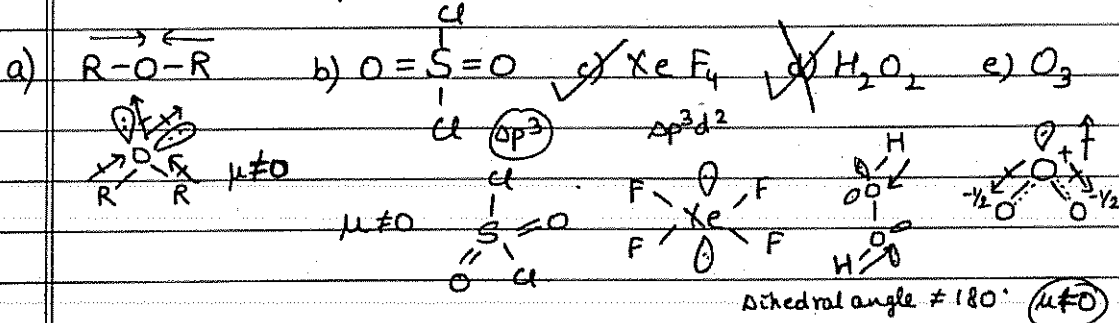 Cl
a) R-O-R b) O=S=O c) XeF₄ d) H₂O₂ e) O₃
Cl sp³ sp³d²
O R R μ≠0
μ≠0 Cl S O O Cl
F F Xe F F
H O O H
O + -1/2 O O -1/2
Dihedral angle ≠ 180° μ≠0